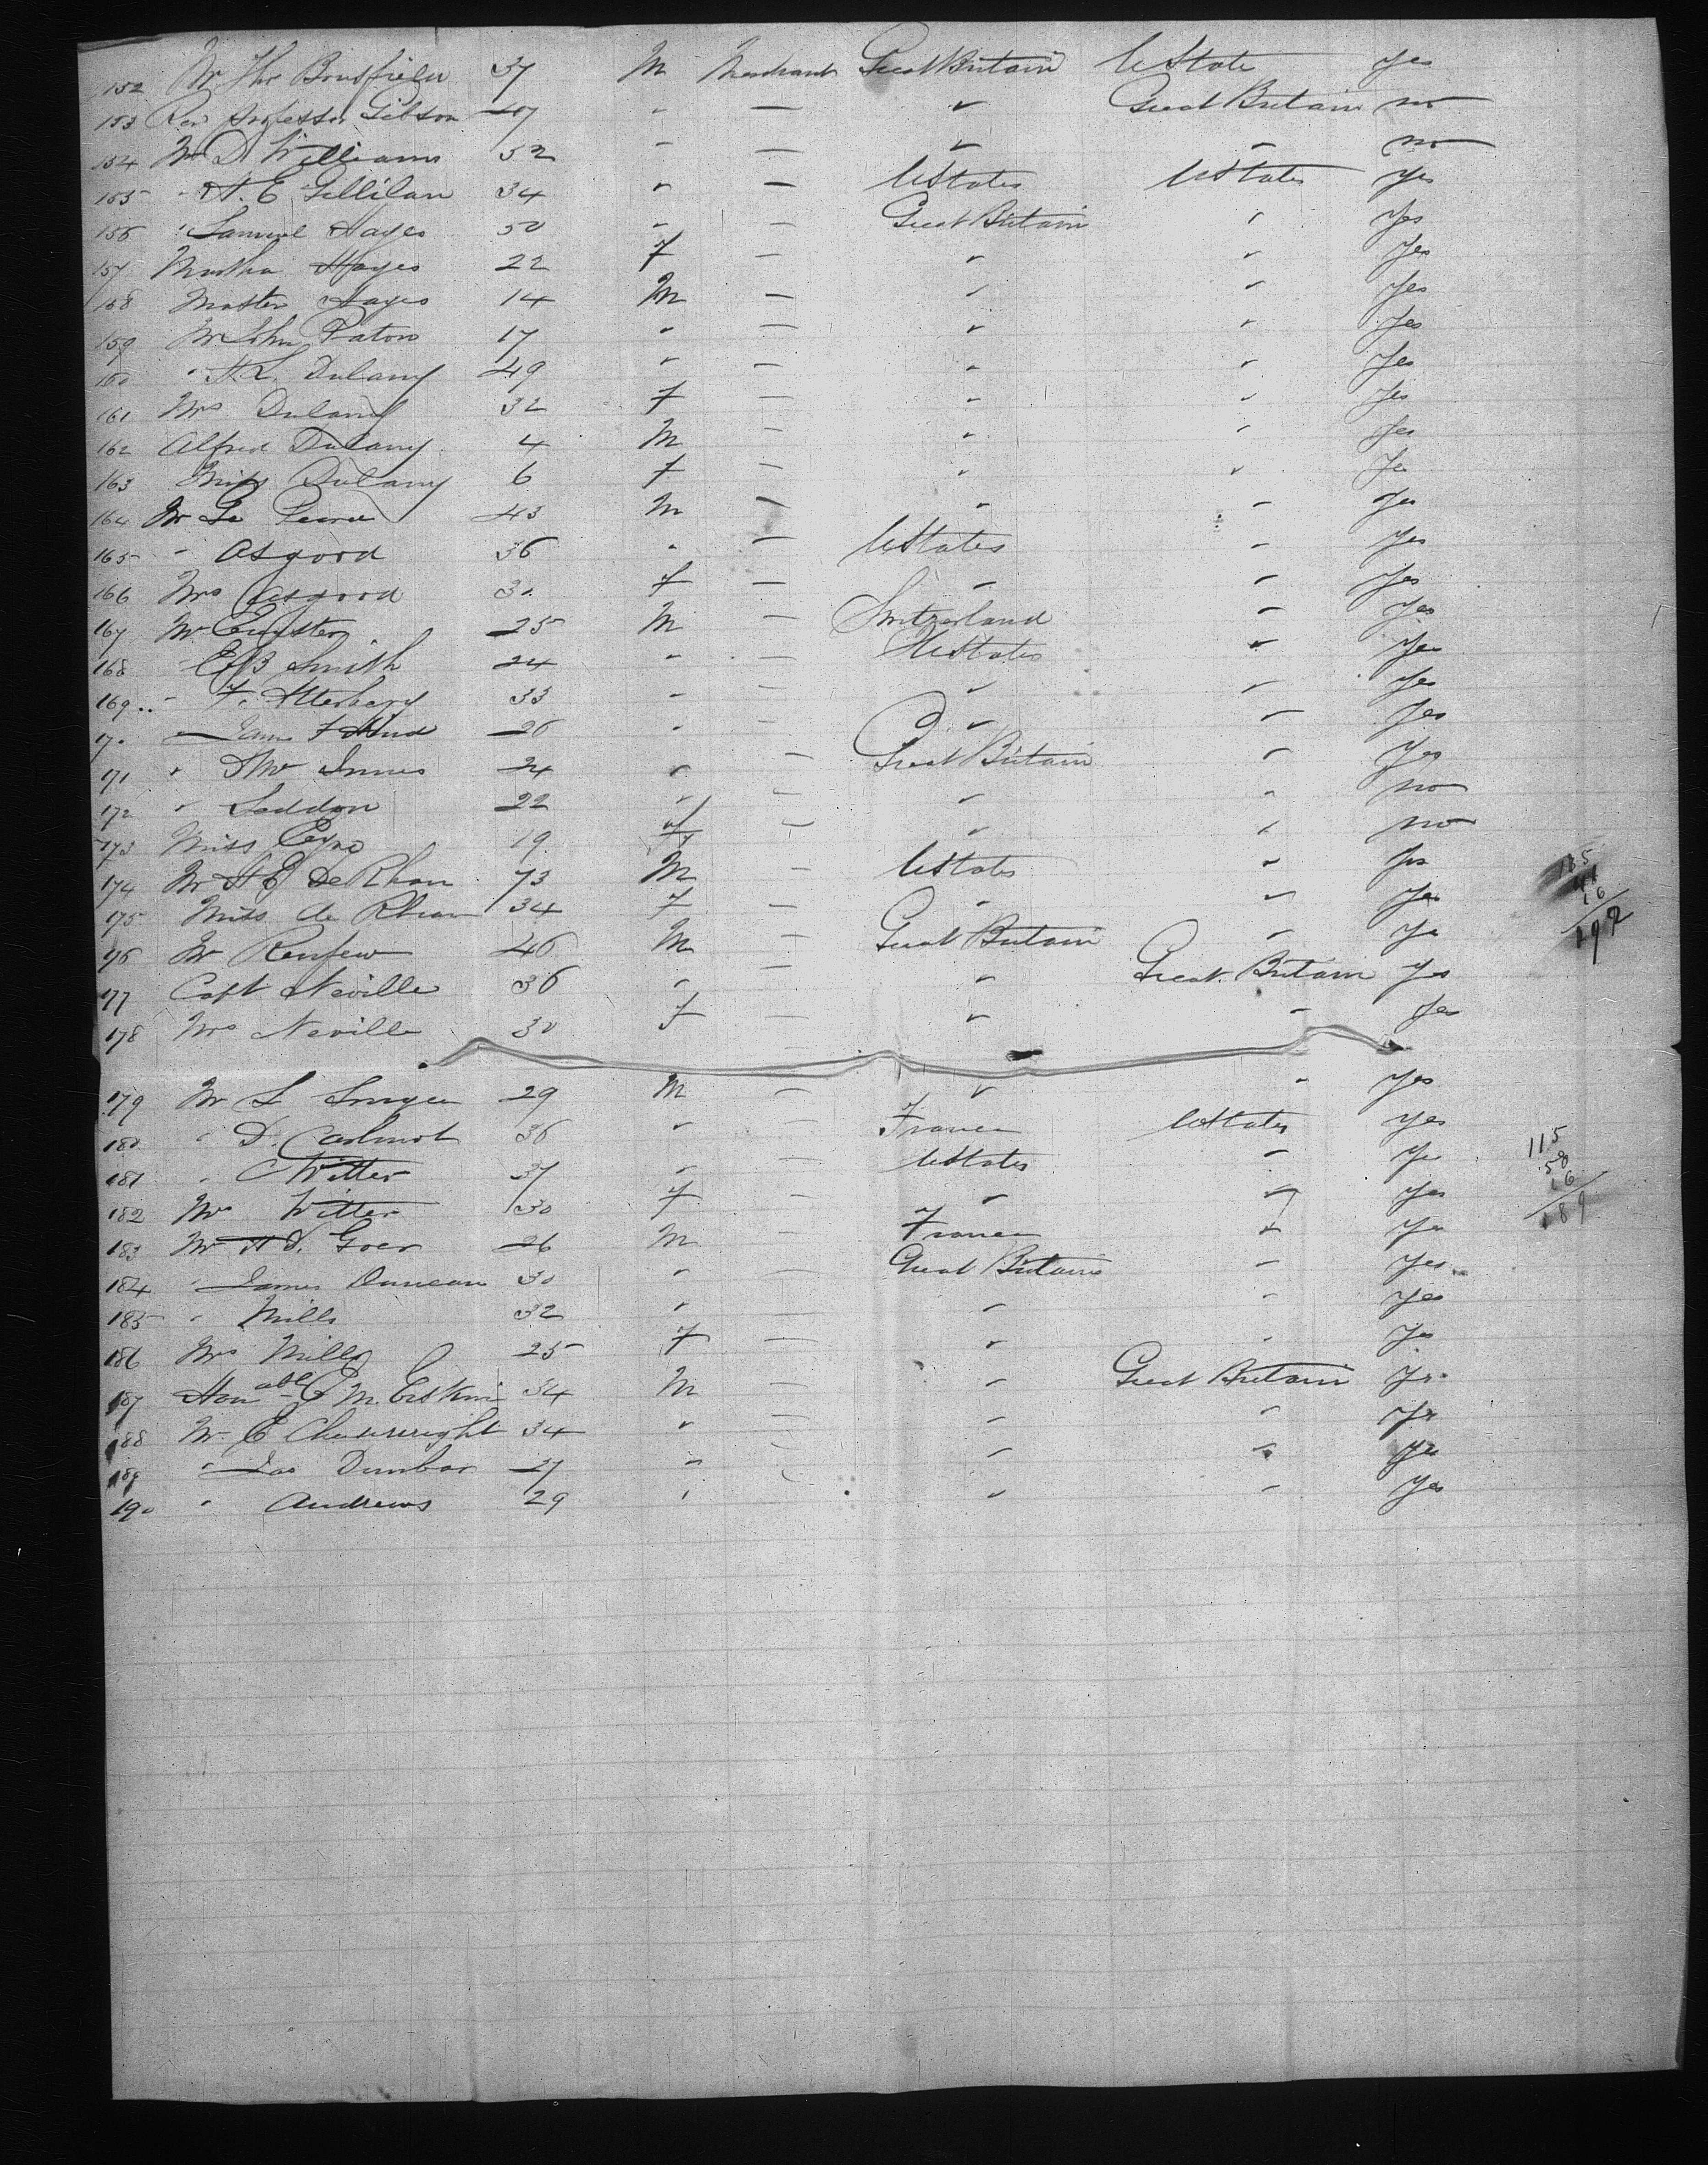 152 Mr Thos Bousfield 37 M Merchant Great Britain UState yes
153 Rev Professor Gibson 47 " — " Great Britain no
154 Mr D Williams 52 " — " " no
155 " H. E Gillilan 34 " — UStates UStates yes
156 " Samuel Hayes 50 " — Great Britain " yes
157 Martha Hayes 22 F — " " yes
158 Master Hayes 14 M — " " yes
159 Mr John Paton 17 " — " " yes
160 " H. L. Dulany 49 " — " " yes
161 Mrs Dulany 32 F — " " yes
162 Alfred Dulany 4 M — " " yes
163 Miss Dulany 6 F — " " yes
164 Mr Pearce 43 M — " " yes
165 " Osgood 36 " — UStates " yes
166 Mrs Osgood 30 F — " " yes
167 Mr 25 M — Switzerland " yes
168 Smith 24 " — UStates " yes
169 " F. Atterbury 33 " — " " yes
170 " 26 " — " " yes
171 " Innes 24 " — Great Britain " yes
172 " Seddon 22 " — " " no
173 Miss 19 F — " " no
174 Mr H C De Rham 73 M — UStates " yes
175 Miss de Rham 34 F — " " yes
176 Mr Renfrew 46 M — Great Britain " yes
177 Capt Neville 36 " — " Great Britain yes
178 Mrs Neville 30 F — " " yes
179 Mr L 29 M — " " yes
180 " D. 36 " — France UStates yes
181 " C Witter 37 " — UStates " yes
182 Mrs Witter 30 F — " " yes
183 Mr 26 M — France " yes
184 " James Duncan 30 " — Great Britain " yes
185 " Mills 32 " — " " yes
186 Mrs Mills 25 F — " " yes
187 Honable E M. Erskine 34 M — " Great Britain yes
188 Mr E 34 " — " " yes
189 " Jas Dunbar 27 " — " " yes
190 " Andrews 29 " " " yes
115
58
16
189